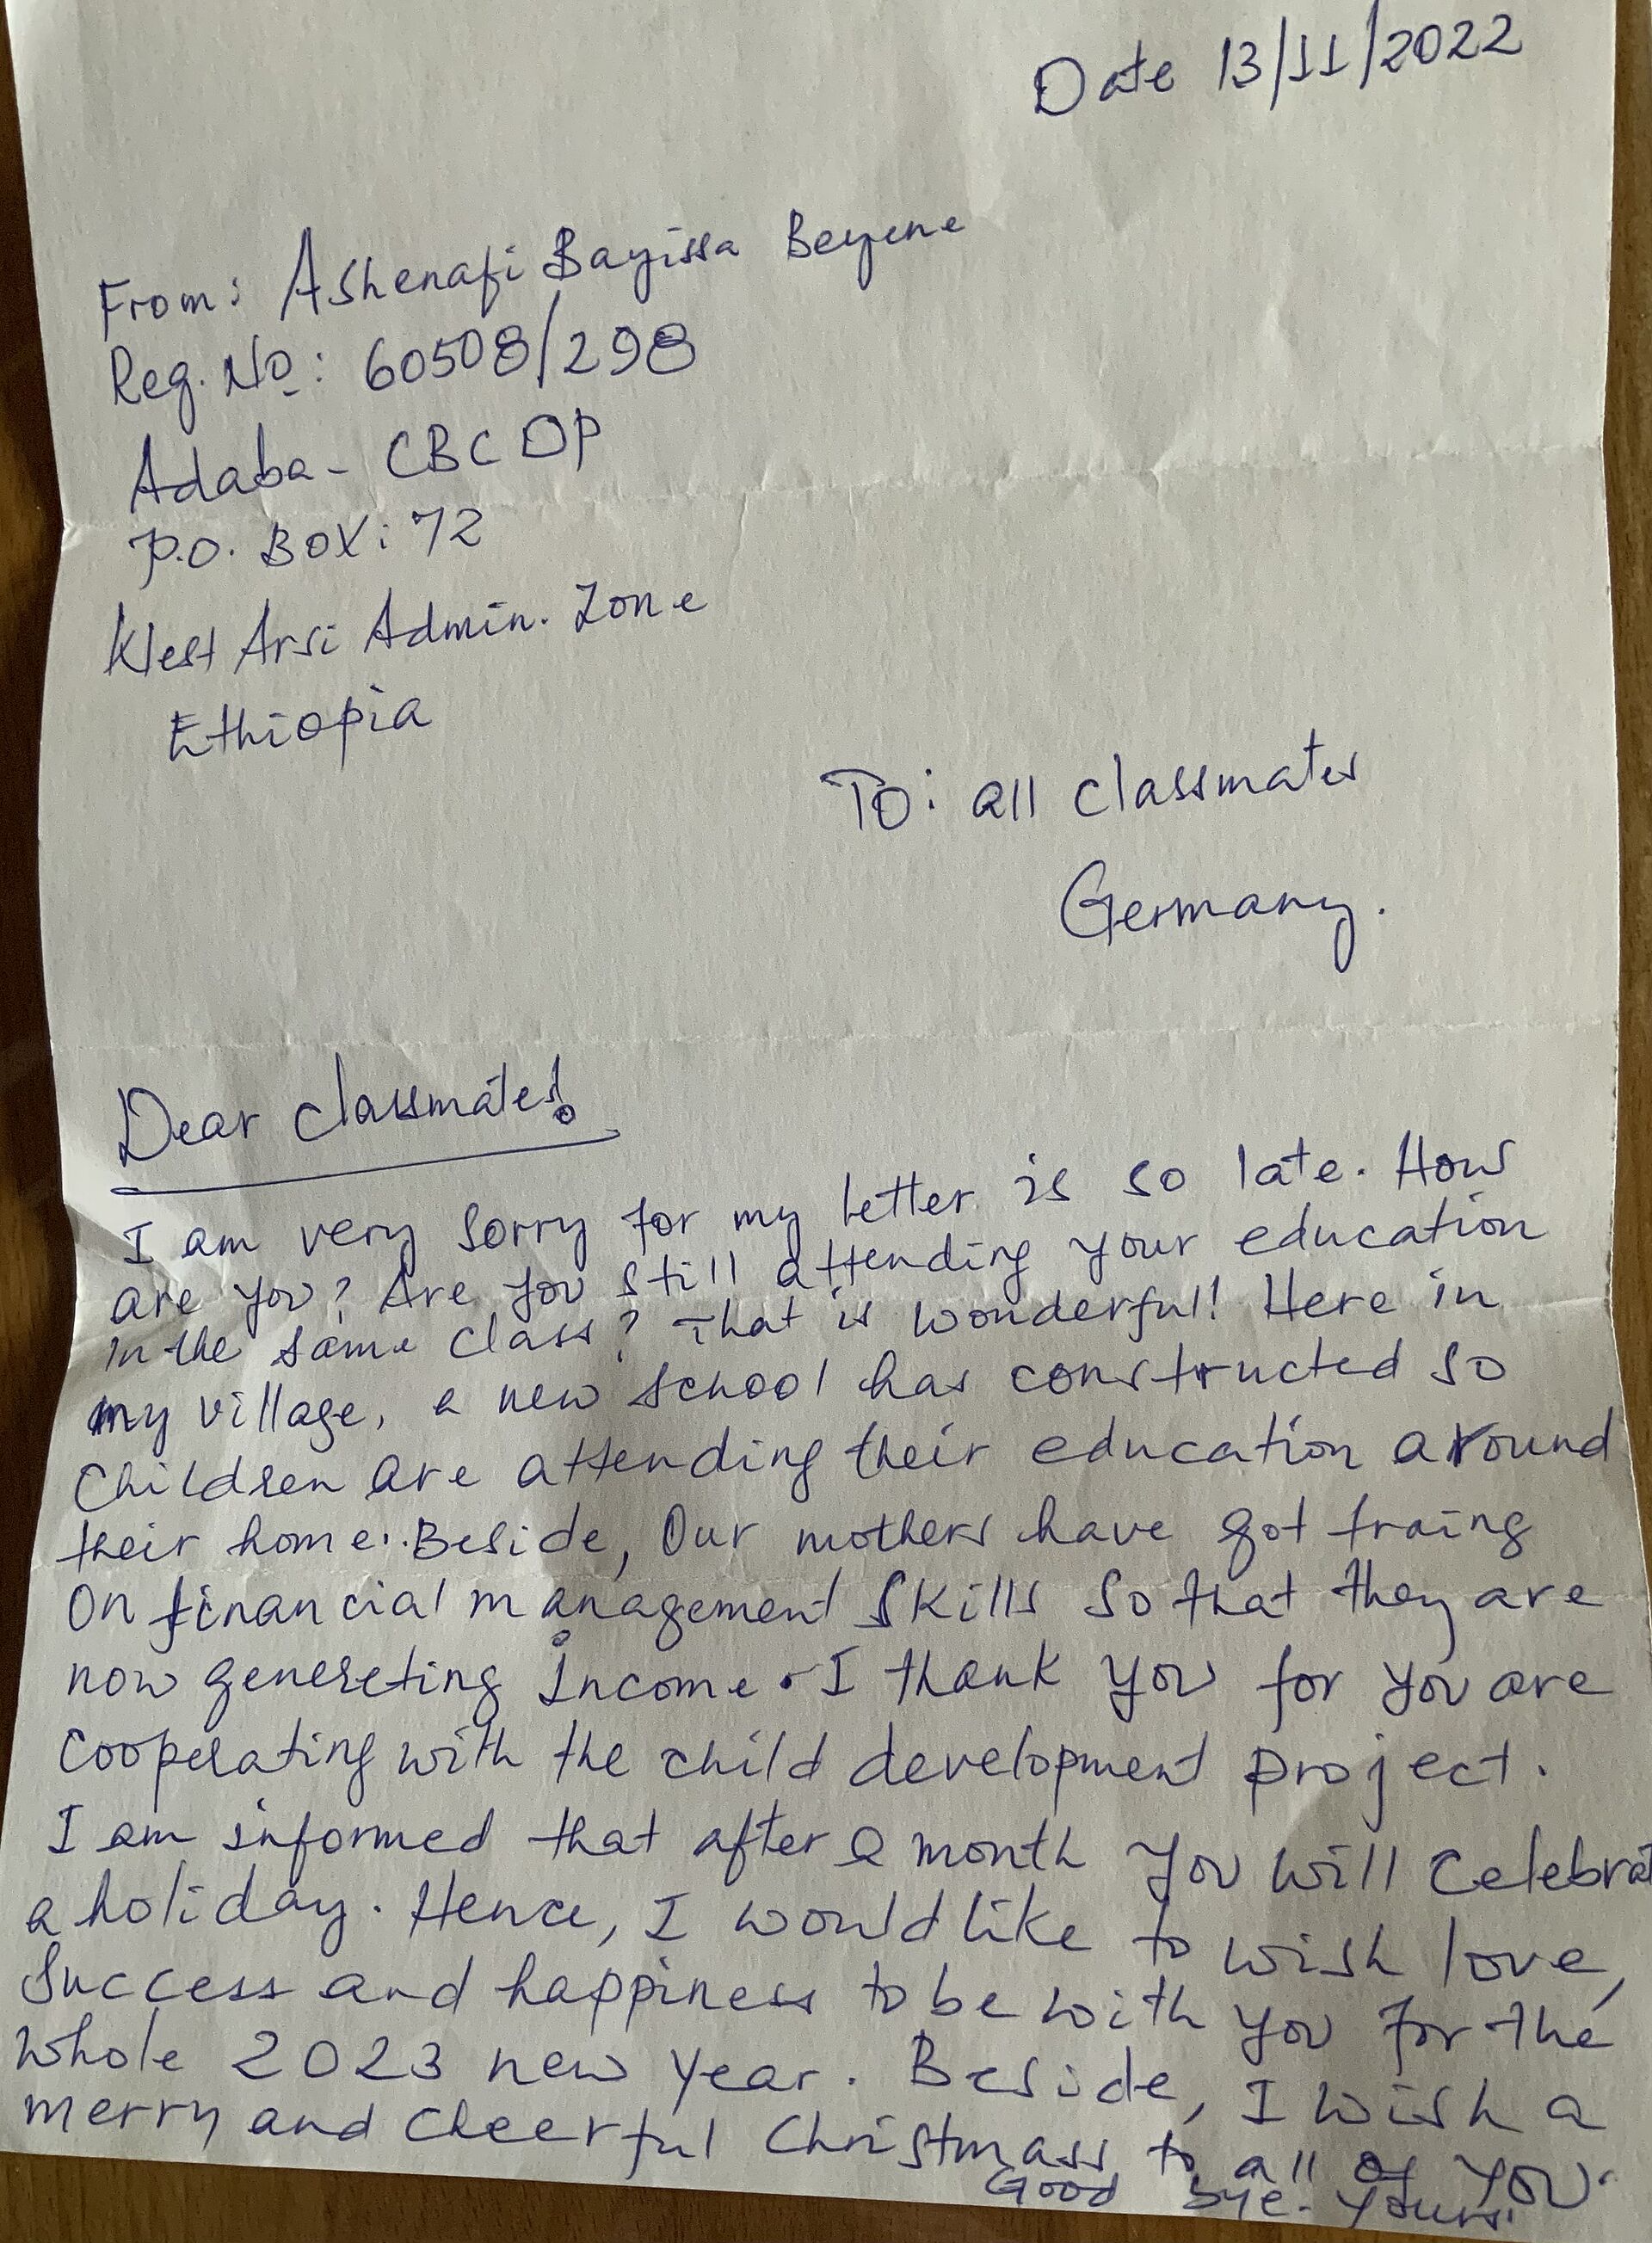 Date 13/11/2022
From: Ashenafi Bayissa Beyene
Reg. No: 60508/298
Adaba - CBCDP
P.O. BOX: 72
West Arsi Admin. Zone
Ethiopia
To: all classmates
Germany.
Dear classmates!
I am very sorry for my letter is so late. How
are you? Are you still attending your education
in the same class? That is wonderful! Here in
my village, a new school has constructed so
children are attending their education around
their home. Beside, Our mothers have got traing
On financial management skills so that they are
now genereting income. I thank you for you are
cooperating with the child development project.
I am informed that after a month you will celebrat
a holiday. Hence, I would like to wish love,
success and happiness to be with you for the
whole 2023 new year. Beside, I wish a
merry and cheerful Christmass to all of you.
Good bye. Yours.